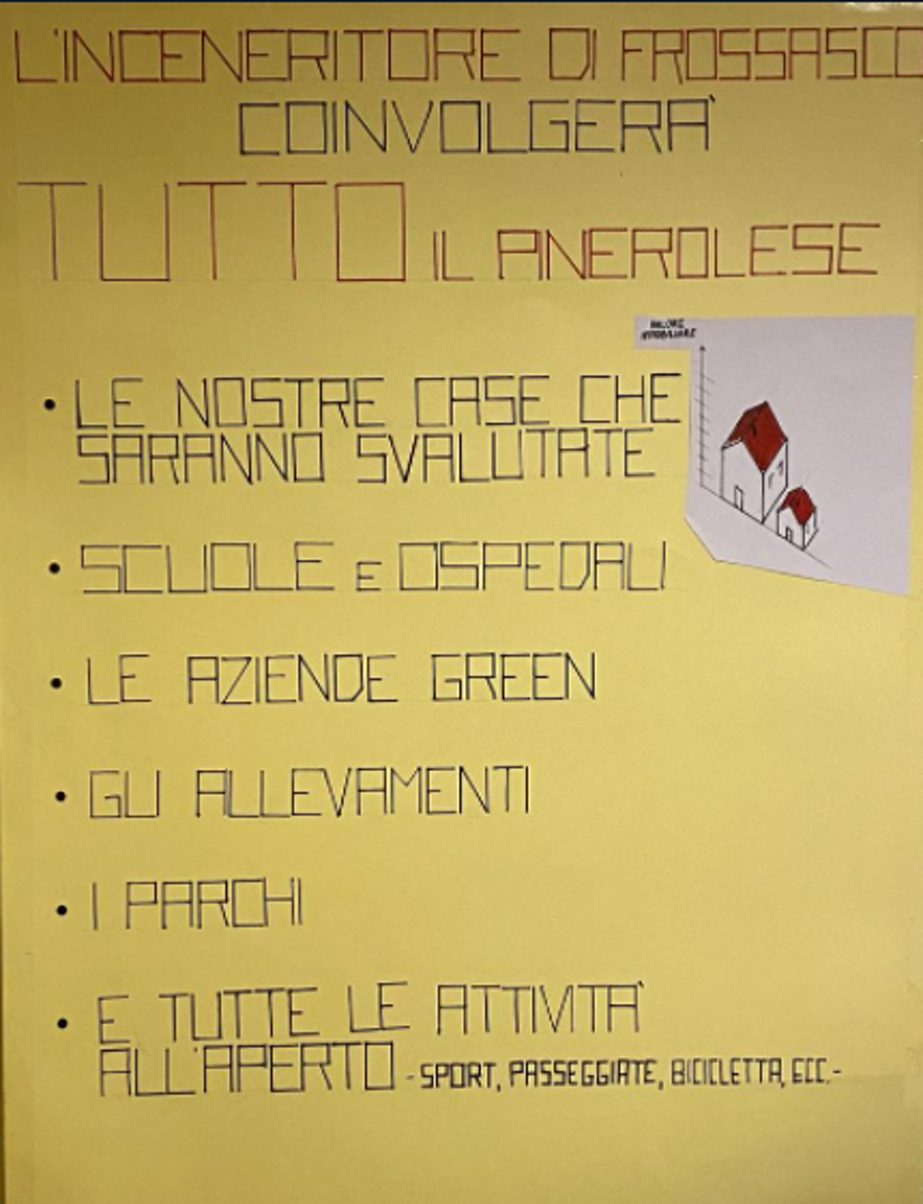 L'INCENERITORE DI FROSSASCO
COINVOLGERA'
TUTTO IL PINEROLESE
VALORE
IMMOBILIARE
• LE NOSTRE CASE CHE
SARANNO SVALUTATE
• SCUOLE E OSPEDALI
• LE AZIENDE GREEN
• GLI ALLEVAMENTI
• I PARCHI
• E TUTTE LE ATTIVITA'
ALL'APERTO - SPORT, PASSEGGIATE, BICICLETTA, ECC. -